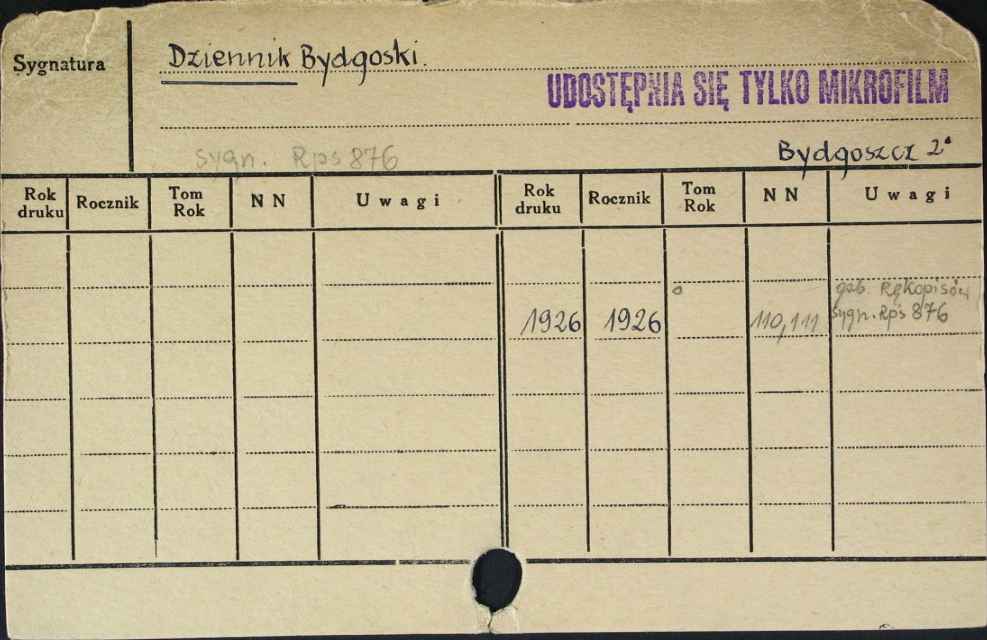 Sygnatura
Dziennik Bydgoski.
UDOSTĘPNIA SIĘ TYLKO MIKROFILM
sygn. Rps 876
Bydgoszcz 2°
Rok druku Rocznik Tom Rok NN Uwagi Rok druku Rocznik Tom Rok NN Uwagi
gab. Rękopisów
1926 1926 110,111 sygn. Rps 876